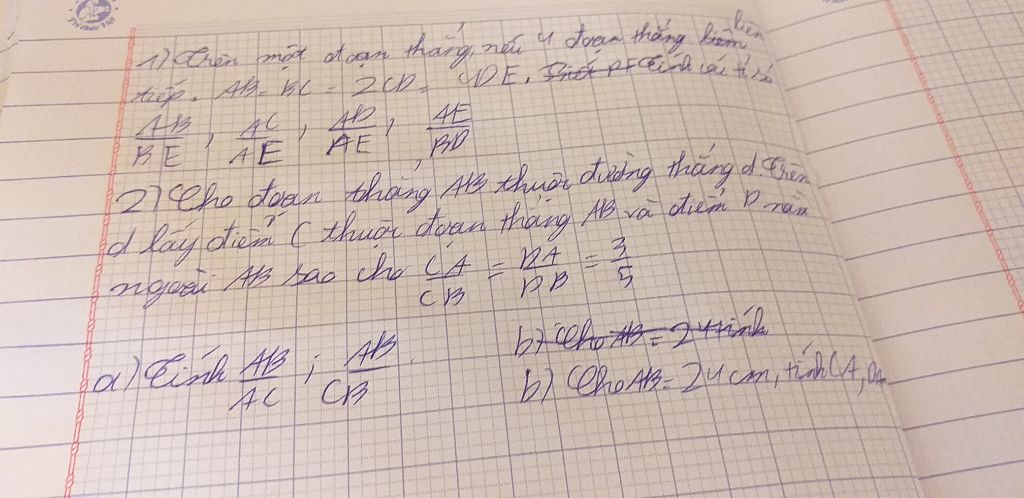 1) Trên một đoạn thẳng, nếu 4 đoạn thẳng liên
tiếp. AB = BC = 2CD = 4DE. Tính các tỉ số
AB/BE, AC/AE, AD/AE, AE/BD
2) Cho đoạn thẳng AB thuộc đường thẳng d. Trên
d lấy điểm C thuộc đoạn thẳng AB và điểm D nằm
ngoài AB sao cho CA/CB = DA/DB = 3/5
a) Tính AB/AC; AB/CB.
b) Cho AB = 24 tính
b) Cho AB = 24cm, tính CA, DA